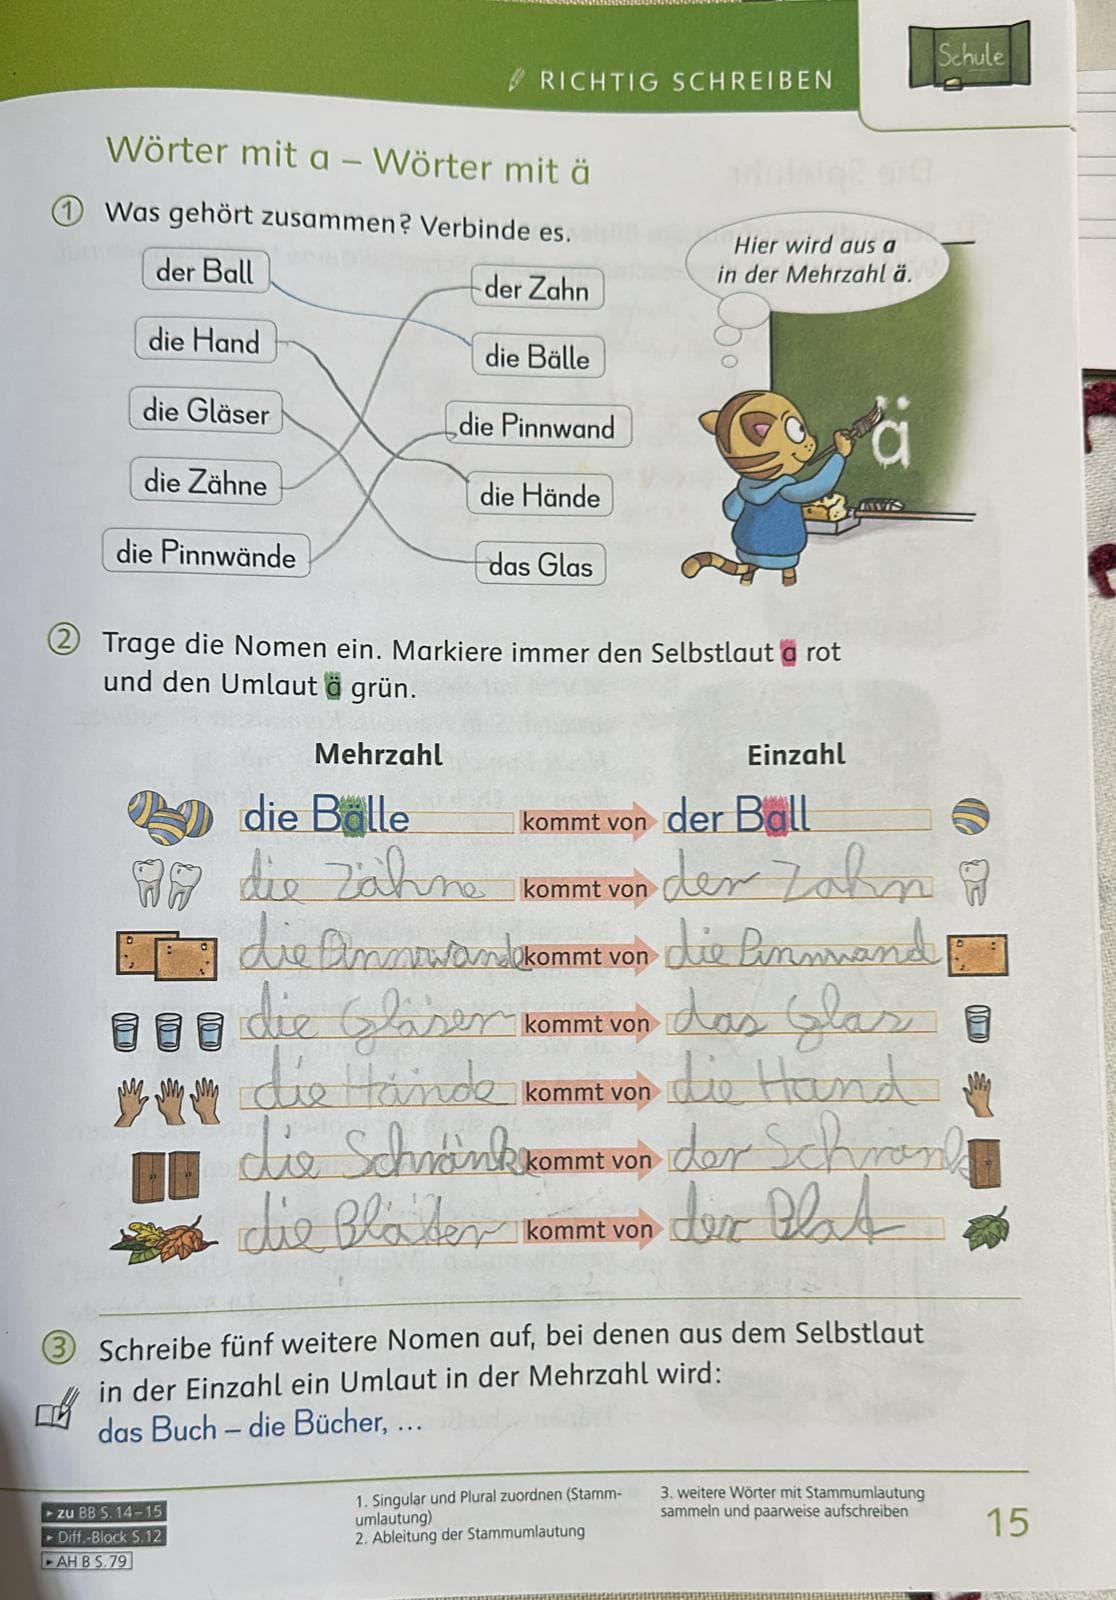 Schule
RICHTIG SCHREIBEN
Wörter mit a – Wörter mit ä
1 Was gehört zusammen? Verbinde es.
Hier wird aus a
in der Mehrzahl ä.
der Ball
der Zahn
die Hand
die Bälle
die Gläser
die Pinnwand
die Zähne
die Hände
die Pinnwände
das Glas
ä
2 Trage die Nomen ein. Markiere immer den Selbstlaut a rot
und den Umlaut ä grün.
Mehrzahl Einzahl
die Bälle kommt von der Ball
die Zähne kommt von der Zahn
die Pinnwände kommt von die Pinnwand
die Gläser kommt von das Glas
die Hände kommt von die Hand
die Schränke kommt von der Schrank
die Blätter kommt von der Blat
3 Schreibe fünf weitere Nomen auf, bei denen aus dem Selbstlaut
in der Einzahl ein Umlaut in der Mehrzahl wird:
das Buch – die Bücher, ...
▸ zu BB S. 14–15
▸ Diff.-Block S.12
▸ AH B S. 79
1. Singular und Plural zuordnen (Stamm-
umlautung)
2. Ableitung der Stammumlautung
3. weitere Wörter mit Stammumlautung
sammeln und paarweise aufschreiben
15